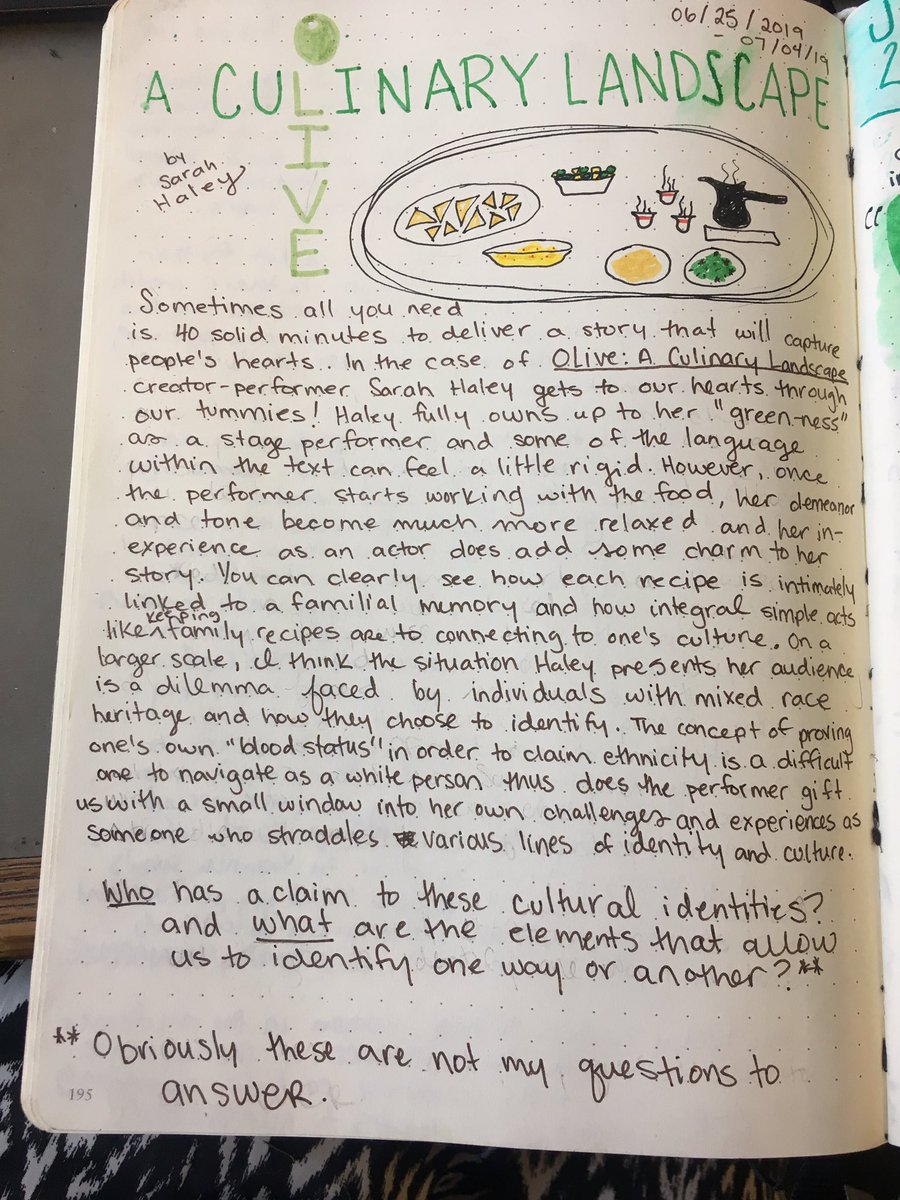 06/25/2019
- 07/04/19
A CULINARY LANDSCAPE
OLIVE
by
Sarah
Haley
Sometimes all you need
is 40 solid minutes to deliver a story that will capture
people's hearts. In the case of OLive: A Culinary Landscape
creator-performer Sarah Haley gets to our hearts through
our tummies! Haley fully owns up to her "green-ness"
as a stage performer and some of the language
within the text can feel a little rigid. However, once
the performer starts working with the food, her demeanor
and tone become much more relaxed and her in-
experience as an actor does add some charm to her
story. You can clearly see how each recipe is intimately
linked to a familial memory and how integral simple acts
like keeping family recipes are to connecting to one's culture. On a
larger scale, I think the situation Haley presents her audience
is a dilemma faced by individuals with mixed race
heritage and how they choose to identify. The concept of proving
one's own "blood status" in order to claim ethnicity is a difficult
one to navigate as a white person thus does the performer gift
us with a small window into her own challenges and experiences as
someone who straddles various lines of identity and culture.
Who has a claim to these cultural identities?
and what are the elements that allow
us to identify one way or another?**
** Obviously these are not my questions to
answer.
195